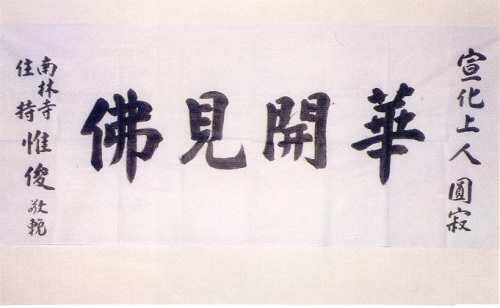 宣化上人圓寂
華開見佛
南林寺
住持惟俊敬輓